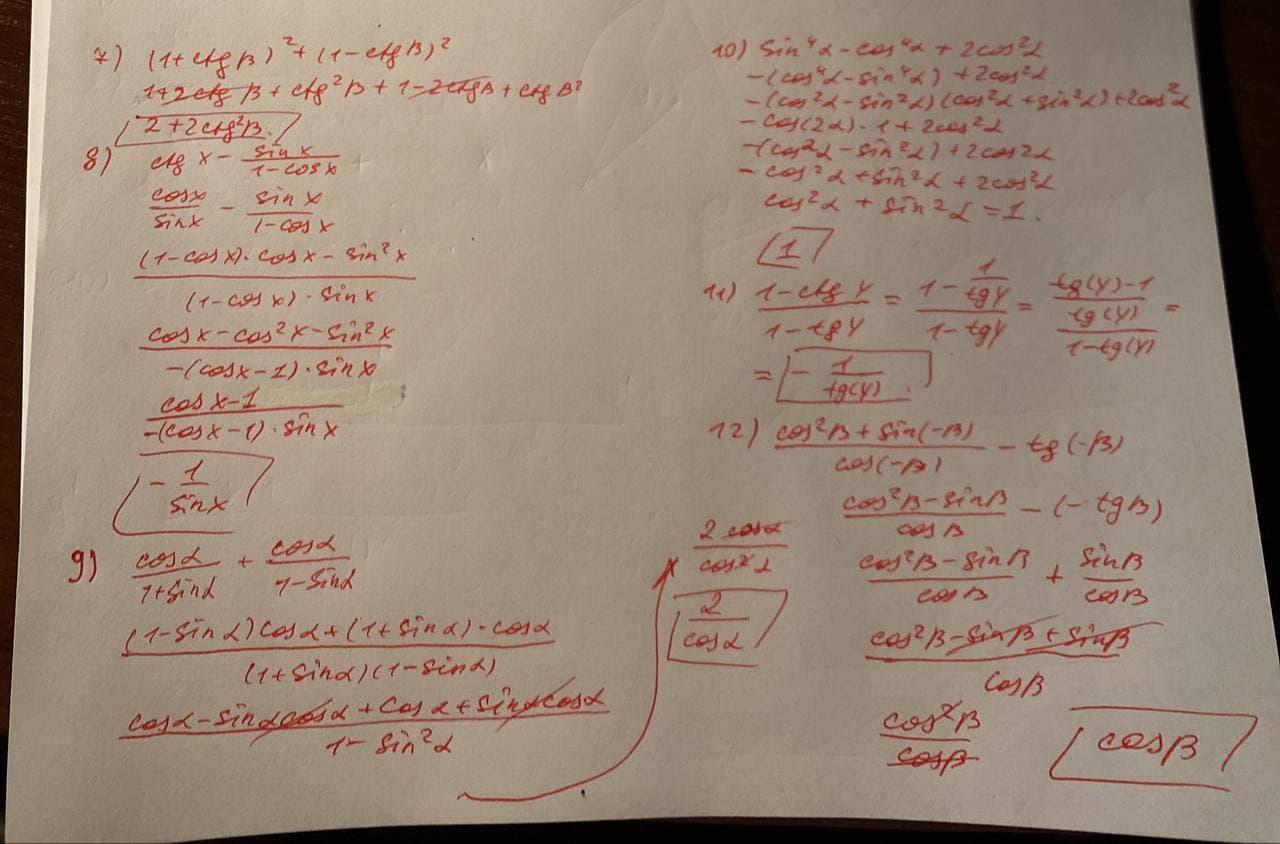 7) (1+ctgβ)²+(1-ctgβ)²
1+2ctgβ+ctg²β+1-2ctgβ+ctgβ²
2+2ctg²β.
8) ctg x - sin x / 1-cos x
cosx / sinx - sin x / 1-cos x
(1-cos x)·cos x - sin²x / (1-cos x)·sin x
cos x - cos²x - sin²x / -(cosx-1)·sin x
cos x-1 / -(cosx-1)·sin x
- 1 / sin x
9) cosα / 1+sinα + cosα / 1-sinα
(1-sinα)cosα+(1+sinα)·cosα / (1+sinα)(1-sinα)
cosα-sinαcosα+cosα+sinαcosα / 1-sin²α
2cosα / cos²α
2 / cosα
10) sin⁴α-cos⁴α+2cos²α
-(cos⁴α-sin⁴α)+2cos²α
-(cos²α-sin²α)(cos²α+sin²α)+2cos²α
-cos(2α)·1+2cos²α
-(cos²α-sin²α)+2cos2α
-cos²α+sin²α+2cos²α
cos²α+sin²α=1.
1
11) 1-ctgγ / 1-tgγ = 1 - 1/tgγ / 1-tgγ = tg(γ)-1 / tg(γ) / 1-tg(γ) =
= - 1 / tg(γ).
12) cos²β+sin(-β) / cos(-β) - tg(-β)
cos²β-sinβ / cosβ - (-tgβ)
cos²β-sinβ / cosβ + sinβ / cosβ
cos²β-sinβ+sinβ / cosβ
cos²β / cosβ
cosβ